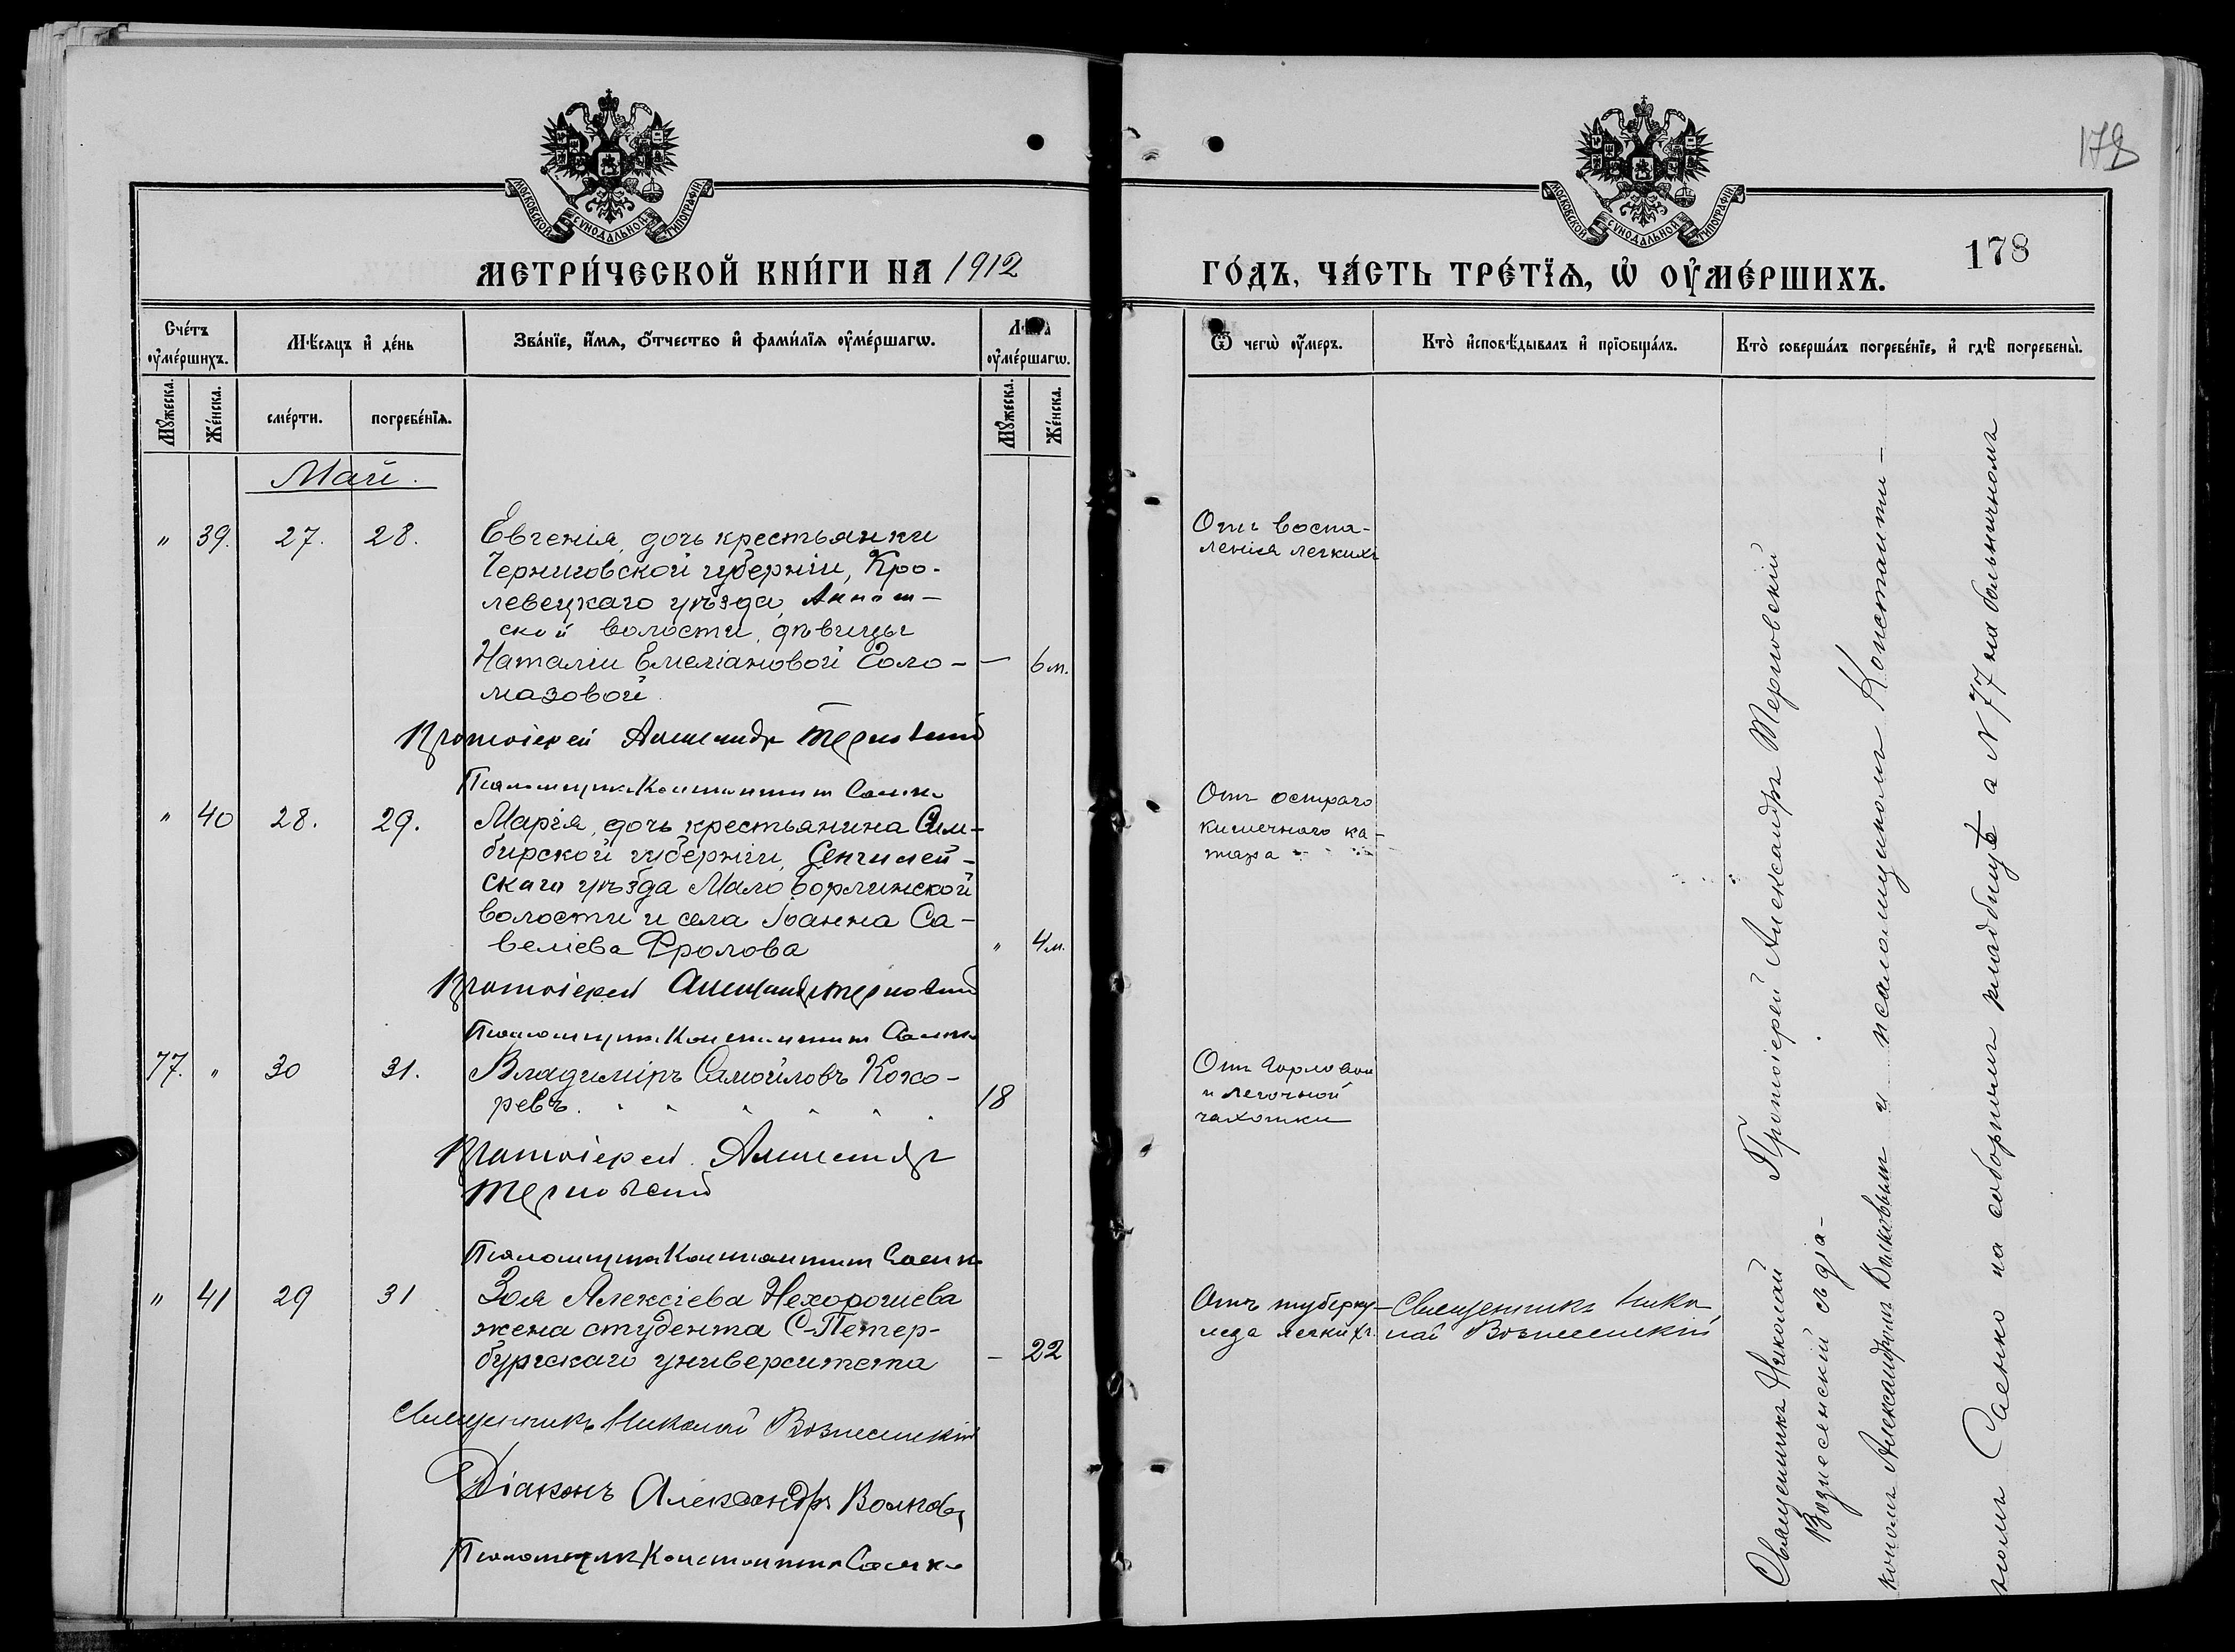 МОСКОВСКОЙ СѴНОДАЛЬНОЙ ТИПОГРАФІИ
МЕТРИ́ЧЕСКОЙ КНИ́ГИ НА 1912
Сче́тъ оу҆ме́ршихъ.
Мѣ́сяцъ и҆ де́нь
Зва́нїе, и҆́мѧ, ѻ҆́тчество и҆ фами́лїѧ оу҆ме́ршагѡ.
Лѣ́та оу҆ме́ршагѡ.
Мꙋ́жеска.
Же́нска.
сме́рти.
погребе́нїѧ.
Мꙋ́жеска.
Же́нска.
Май.
" 39. 27. 28. Евгенія, дочь крестьянки
Черниговской губерніи, Кро-
левецкаго уѣзда,
ской волости, дѣвицы
Наталіи Емеліановой Соло- — 6 м.
мазовой
Протоіерей Александръ Терновскій
Псаломщикъ Константинъ Саенко
" 40 28. 29. Марія, дочь крестьянина Сим-
бирской губерніи, Сенгилей-
скаго уѣзда Мало борлинской
волости и села Іоанна Са-
веліева Фролова " 4 м.
Протоіерей Александръ Терновскій
Псаломщикъ Константинъ Саенко
77. " 30 31. Владиміръ Самойловъ Кохо-
ревъ. 18
Протоіерей Александръ
Терновскій
Псаломщикъ Константинъ Саенко
" 41 29 31 Зоя Алексіева Нехорошева
жена студента С-Петер-
бургскаго университета — 22
Священникъ Николай Вознесенскій
Діаконъ Александръ Волковъ
Псаломщикъ Константинъ Саенко
178
МОСКОВСКОЙ СѴНОДАЛЬНОЙ ТИПОГРАФІИ
178
ГО́ДЪ, ЧА́СТЬ ТРЕ́ТЇѦ, Ѡ҆ ОУ҆МЕ́РШИХЪ.
Ѿ чегѡ̀ оу҆́меръ.
Кто̀ и҆сповѣ́дывалъ и҆ прїѻбща́лъ.
Кто̀ соверша́лъ погребе́нїе, и҆ гдѣ̀ погребены̀.
Отъ воспа-
ленія легкихъ
Отъ остраго
кишечнаго ка-
тара
Отъ горловой
и легочной
чахотки
Отъ туберку-
леза легкихъ.
Священникъ Нико-
лай Вознесенскій
Протоіерей Александръ Терновскій
Священникъ Николай
Вознесенскій съ діа-
кономъ Александромъ Волковымъ и псаломщикомъ Константи-
номъ Саенко на соборномъ кладбищѣ а N 77 на больничномъ